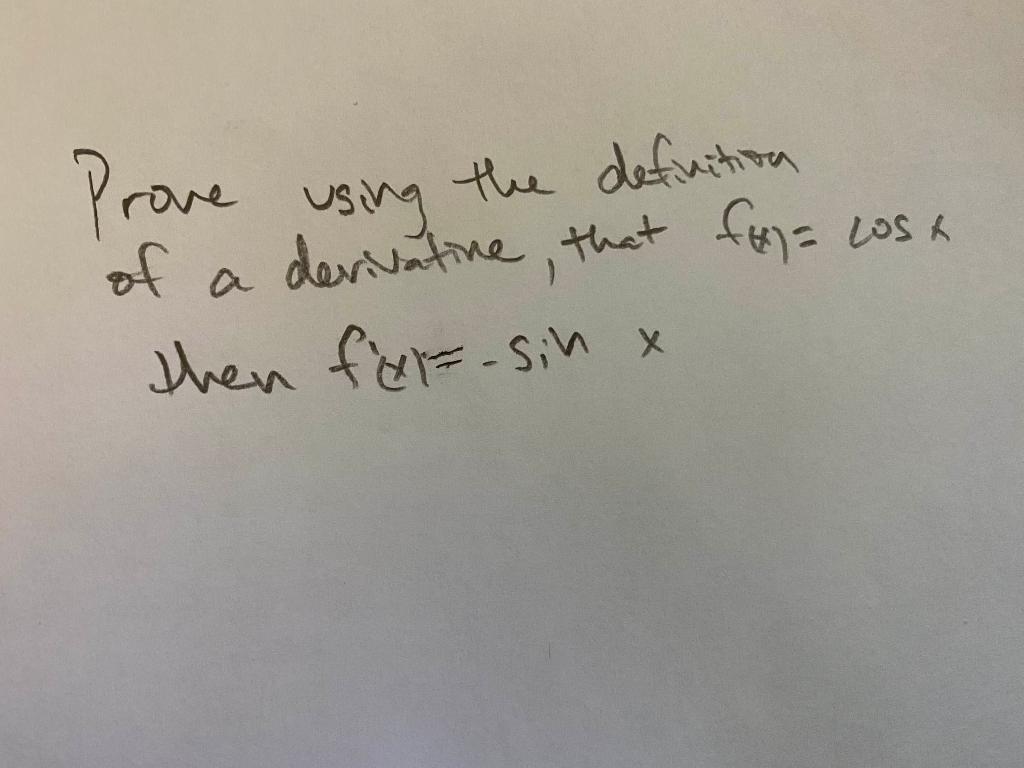 Prove using the definition
of a derivative, that f(x) = cos x
then f'(x) = - sin x